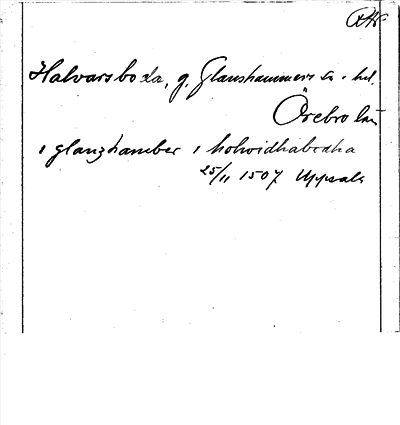 Halvarsboda, g. Glanshammers sn. o. hd.
Örebro län
i glanzhamber i holwidhabodha
25/11 1507 Uppsala